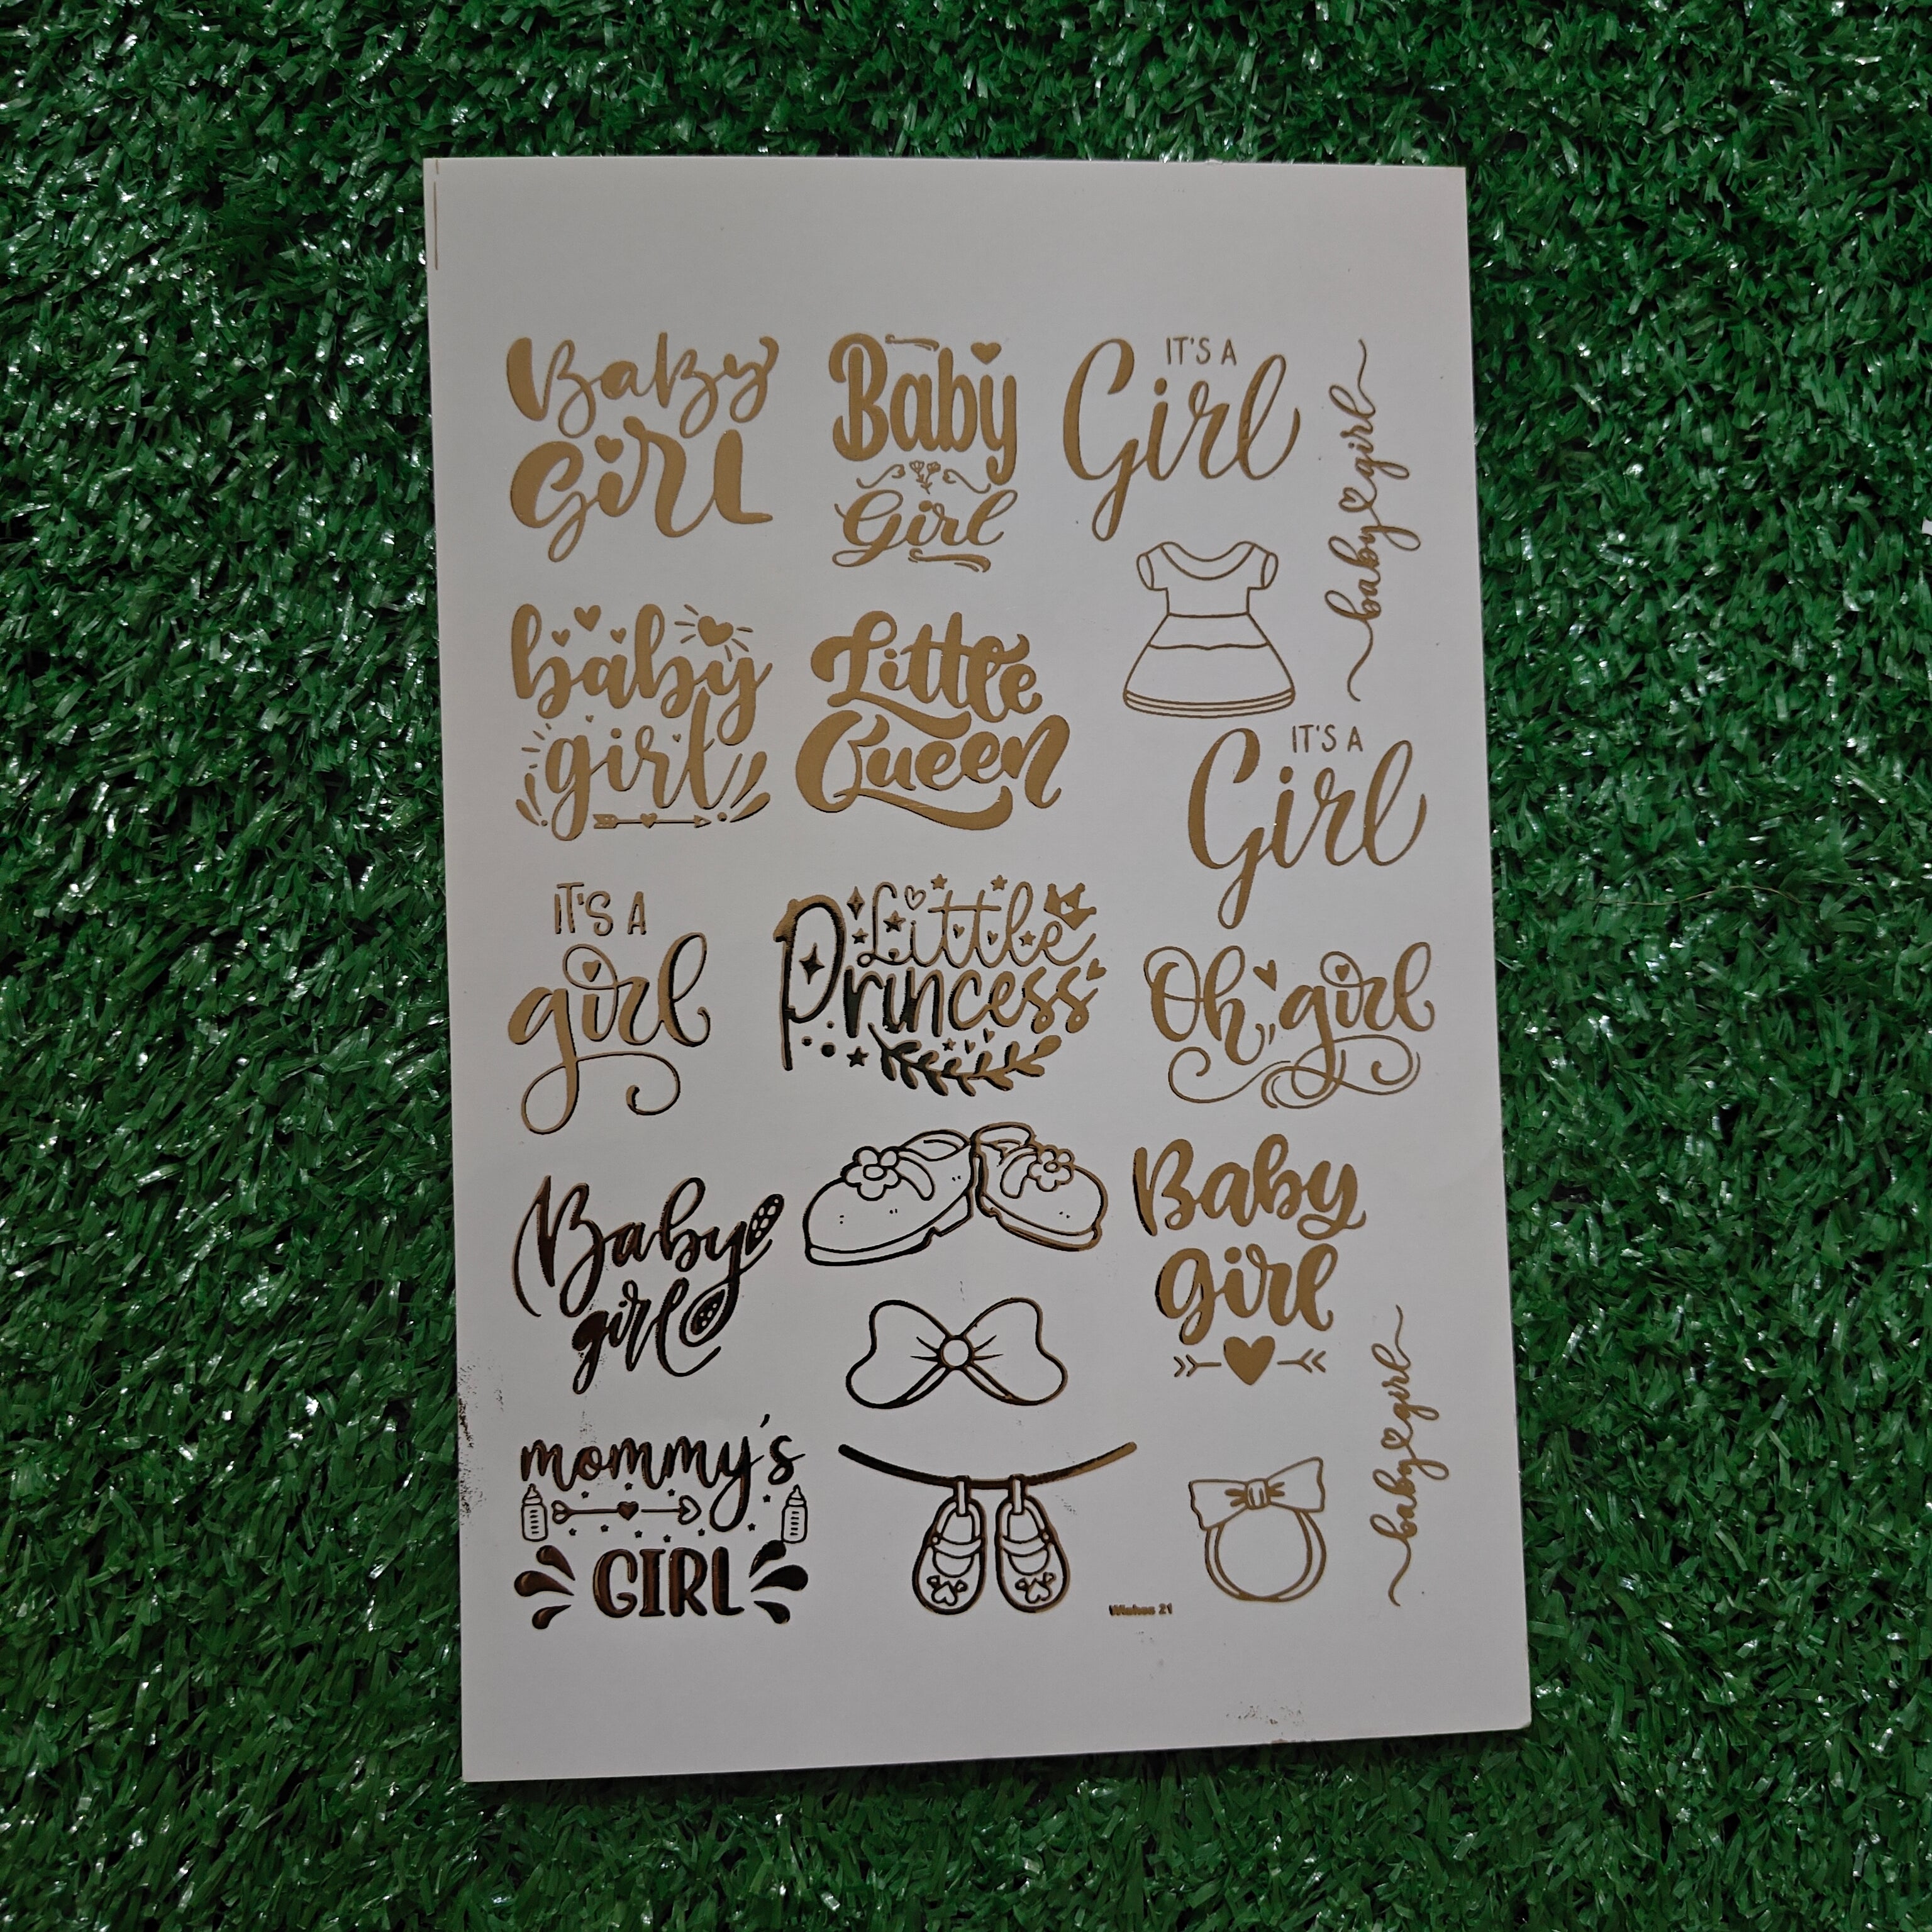 BaBy
GiRL
Baby
Girl
IT'S A
Girl
baby girl
baby
girl
Little
Queen
IT'S A
Girl
IT'S A
girl
Little
Princess
Oh, girl
Baby
girl
Baby
girl
baby girl
mommy's
GIRL
Wishes 21